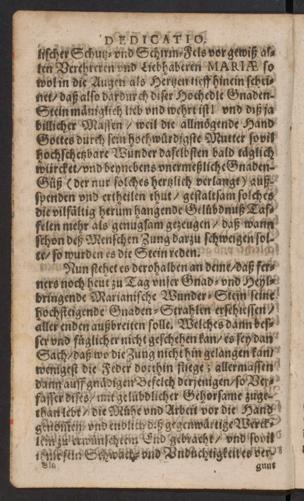 DEDICATIO.
lischer Schutz- vnd Schirm-Fels vor gewiß al-
len Verehreren vnd Liebhaberen MARIÆ so
wol in die Augen als Hertzen tieff hinein schei-
net / daß also dardurch diser Hochedle Gnaden-
Stein mäniglich lieb vnd wehrt ist! vnd diß ja
billicher Massen / weil die allmögende Hand
Gottes durch sein hochwürdigste Mutter sovil
hochschetzbare Wunder daselbsten bald täglich
würcket / vnd beynebens vnermeßliche Gnaden-
Güß (der nur solches hertzlich verlangt) auß-
spenden vnd ertheilen thut / gestaltsam solches
die vilfältig herum hangende Gelübdnuß Taf-
felen mehr als genugsam gezeugen / daß wann
schon deß Menschen Zung darzu schweigen sol-
te / so wurden es die Stein reden.
Nun stehet es derohalben an deme / daß fer-
ners noch heut zu Tag vnser Gnad- vnd Heyl-
bringende Marianische Wunder-Stein seine
hochsteigende Gnaden-Strahlen erschiessen /
aller enden außbreiten solle. Welches dann bes-
ser vnd füglicher nicht geschehen kan / es sey dan
Sach / daß wo die Zung nicht hin gelangen kan /
wenigest die Feder dorthin fliege; allermassen
dann auff gnädigen Befelch derjenigen / so Ver-
fasser dises / mit gelübdlicher Gehorsame zuge-
than lebt / die Mühe vnd Arbeit vor die Hand
genommen / vnd endlich diß gegenwärtige Werck-
lein zu erwünschtem End gebracht / vnd sovil
sein Schwach- vnd Vndüchtigkeit es ver-
gunt